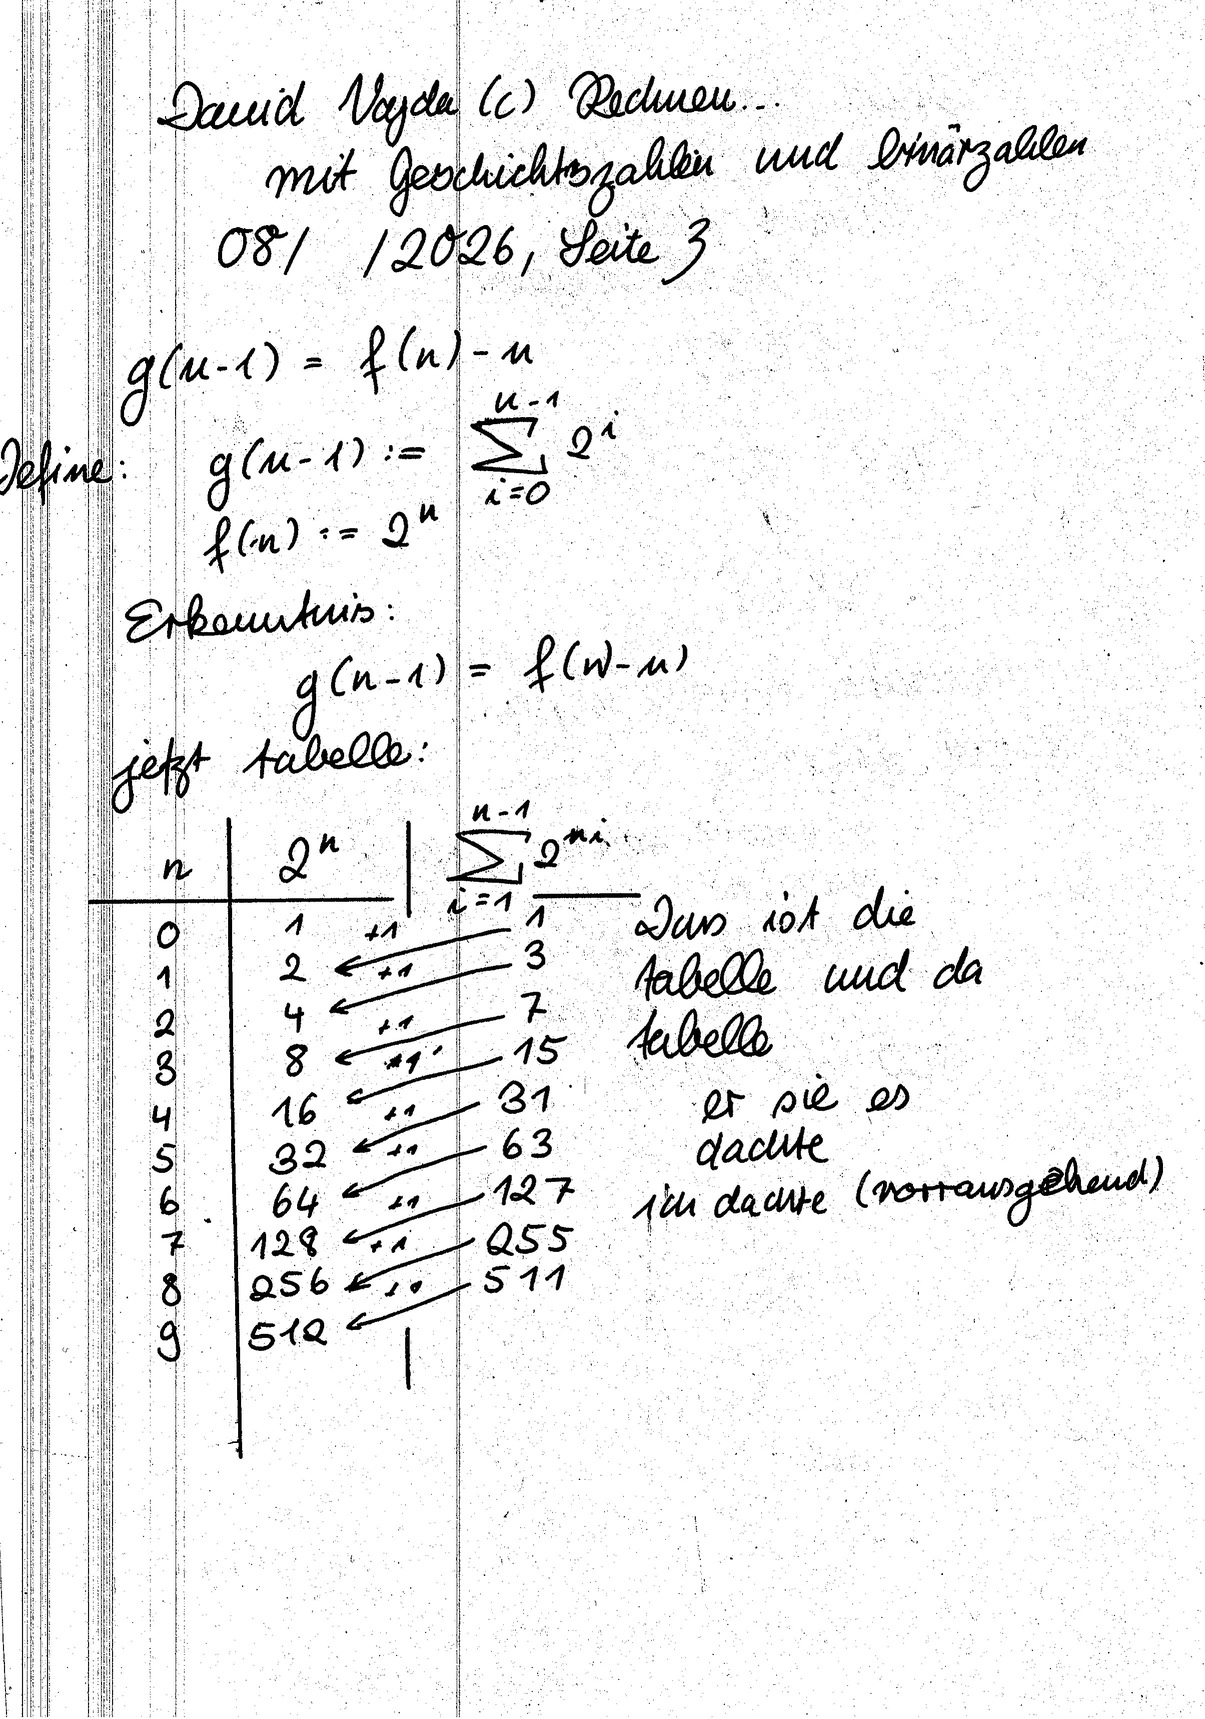 David Vajda (c) Rechnen...
mit Geschichtszahlen und binärzahlen
08/ /2026, Seite 3
g(n-1) = f(n) - n
Define: g(n-1) := ∑_{i=0}^{n-1} 2^i
f(n) := 2^n
Erkenntnis:
g(n-1) = f(n)-n)
jetzt tabelle:
n | 2^n | ∑_{i=1}^{n-1} 2^{ni}
0 1 +1 1 Das ist die
1 2 +1 3 tabelle und da
2 4 +1 7 tabelle
3 8 +1 15
4 16 +1 31 er sie es
5 32 +1 63 dachte
6 64 +1 127 ich dachte (vorrausgehend)
7 128 +1 255
8 256 +1 511
9 512